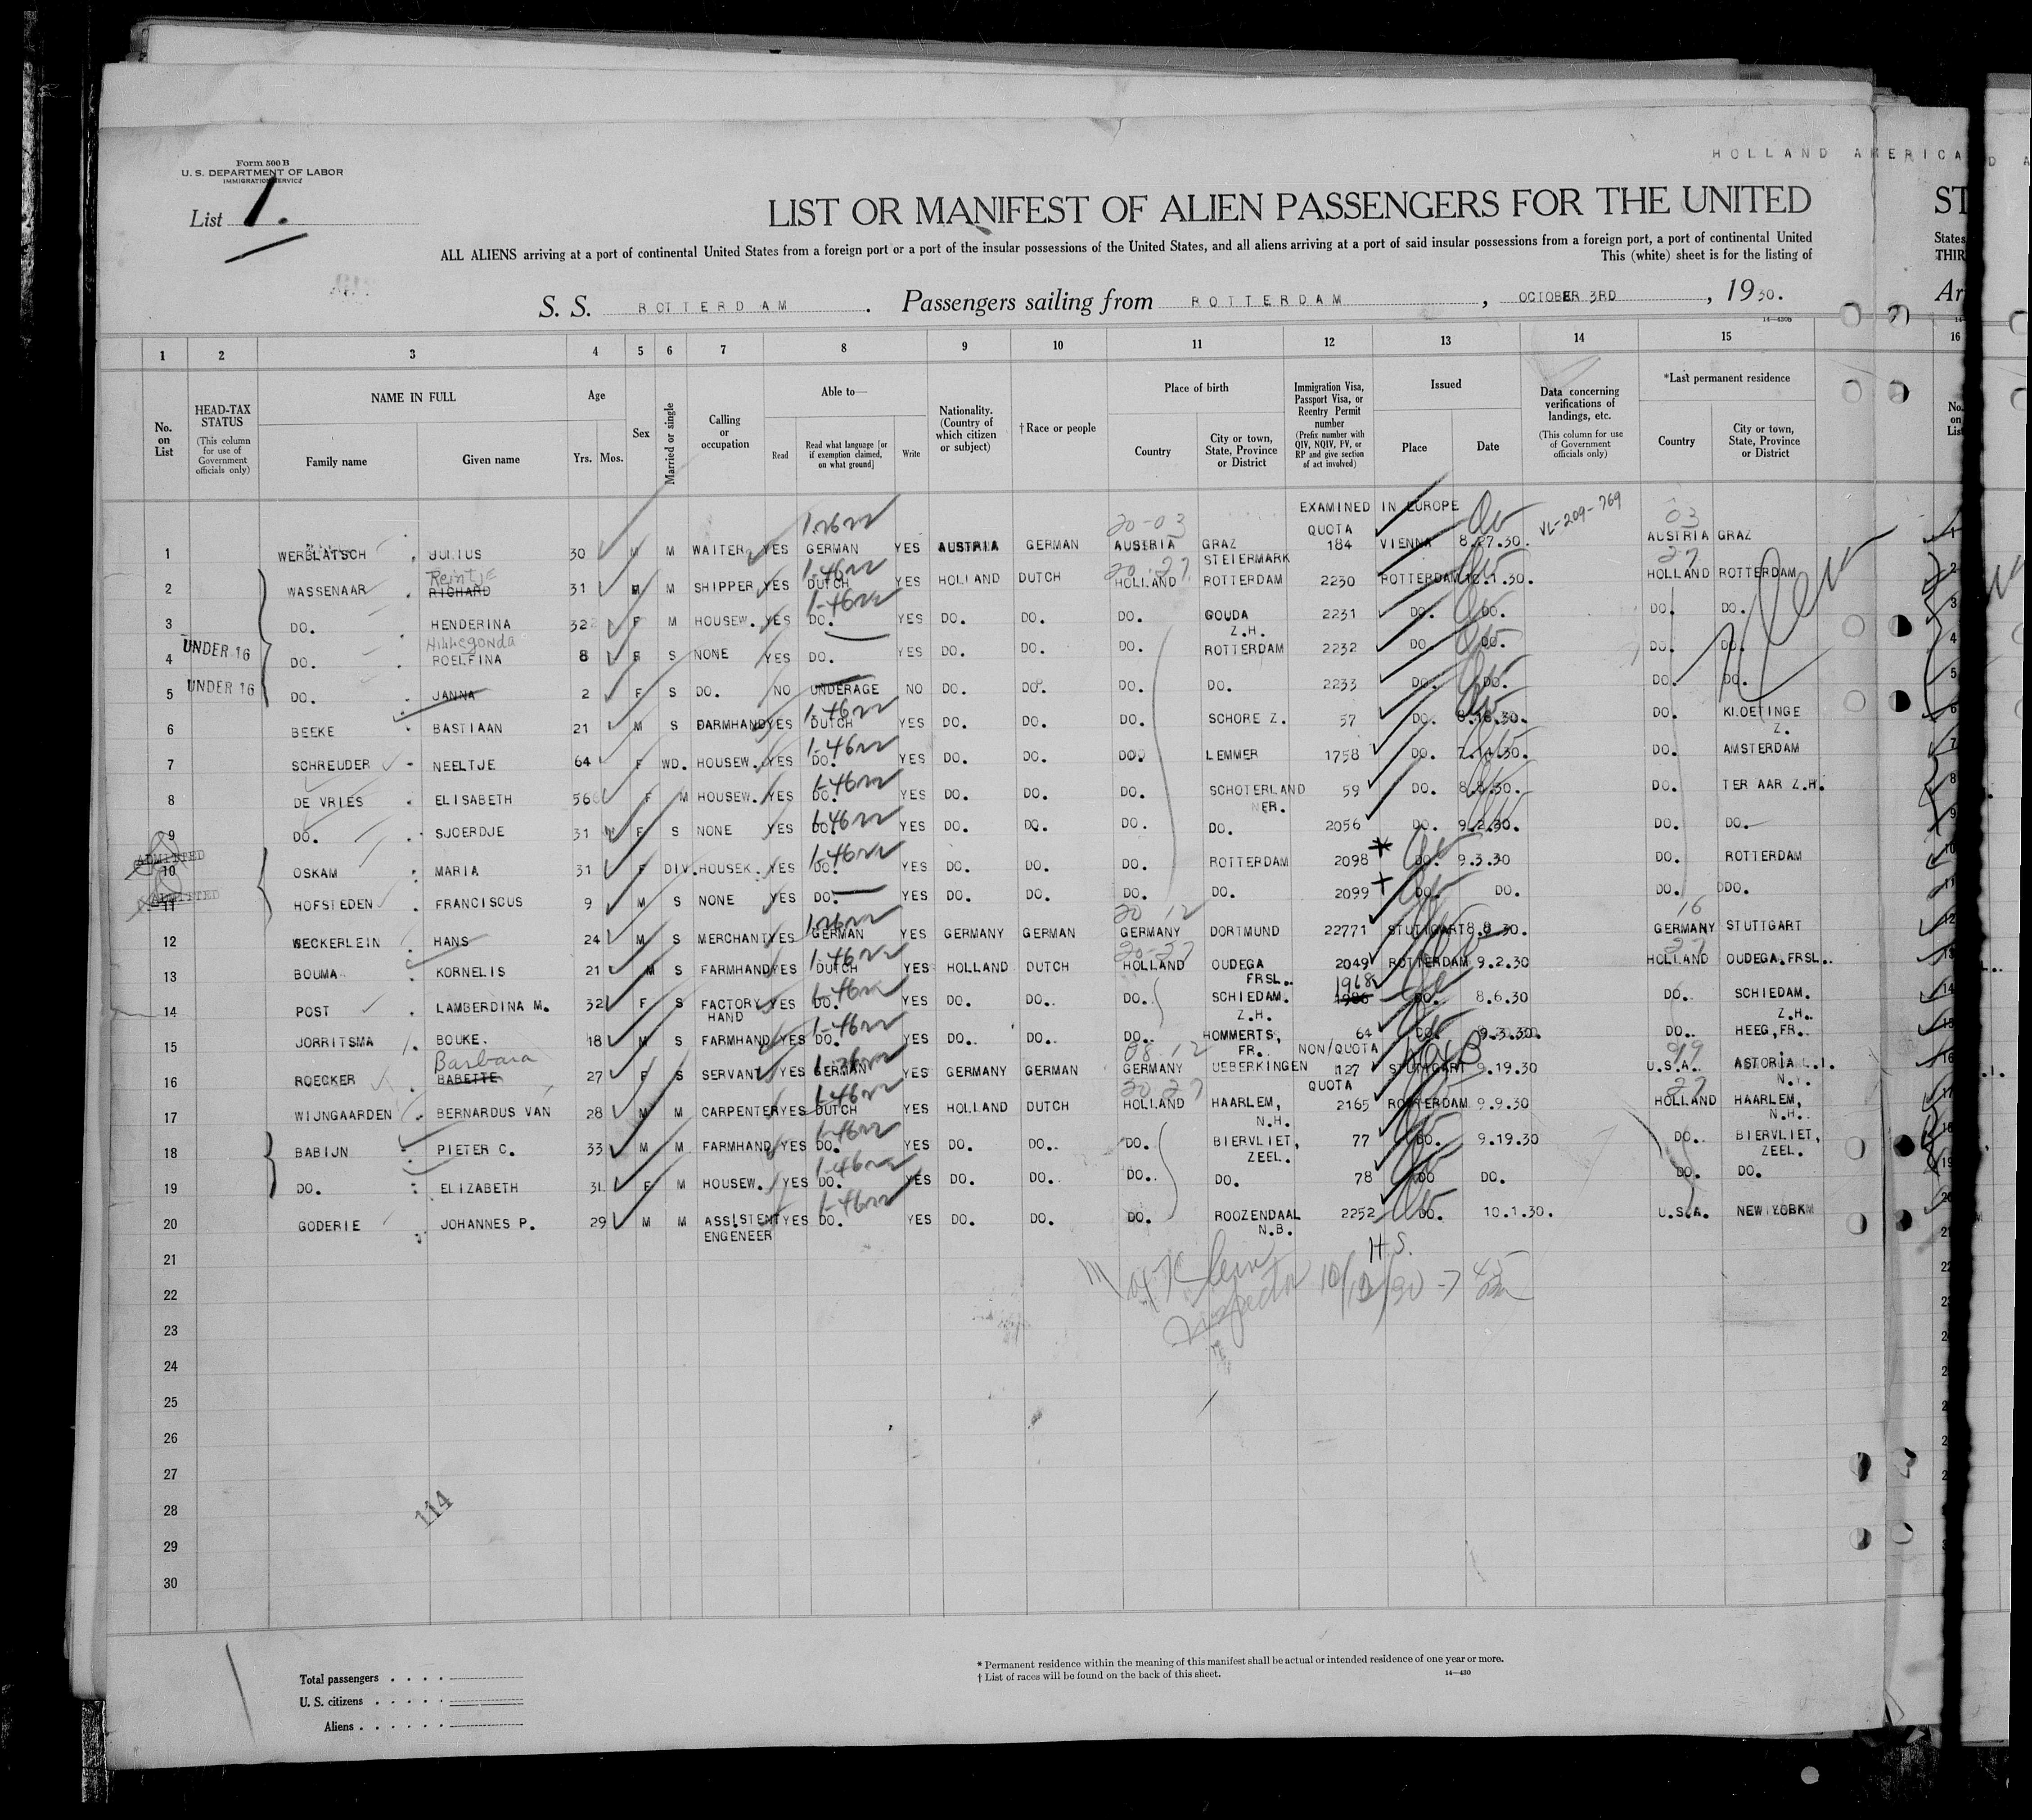 HOLLAND AMERICA
Form 500 B
U. S. DEPARTMENT OF LABOR
IMMIGRATION SERVICE
List 1.
LIST OR MANIFEST OF ALIEN PASSENGERS FOR THE UNITED
ALL ALIENS arriving at a port of continental United States from a foreign port or a port of the insular possessions of the United States, and all aliens arriving at a port of said insular possessions from a foreign port, a port of continental United
This (white) sheet is for the listing of
S. S. ROTTERDAM . Passengers sailing from ROTTERDAM , OCTOBER 3RD , 1930.
1 2 3 4 5 6 7 8 9 10 11 12 13 14 15 16
No. on List
HEAD-TAX STATUS (This column for use of Government officials only)
NAME IN FULL
Family name Given name
Age Yrs. Mos.
Sex
Married or single
Calling or occupation
Able to— Read Read what language [or if exemption claimed, on what ground] Write
Nationality. (Country of which citizen or subject)
†Race or people
Place of birth Country City or town, State, Province or District
Immigration Visa, Passport Visa, or Reentry Permit number (Prefix number with QIV, NQIV, PV, or RP and give section of act involved)
Issued Place Date
Data concerning verifications of landings, etc. (This column for use of Government officials only)
*Last permanent residence Country City or town, State, Province or District
EXAMINED IN EUROPE
20-03 QUOTA VL-209-769 03
1 WERBLATSCH JULIUS 30 M M WAITER YES GERMAN YES AUSTRIA GERMAN AUSTRIA GRAZ STEIERMARK 184 VIENNA 8.27.30. AUSTRIA GRAZ
Reintje 1-46 20-27 27
2 WASSENAAR RICHARD 31 M M SHIPPER YES DUTCH YES HOLLAND DUTCH HOLLAND ROTTERDAM 2230 ROTTERDAM 10.1.30. HOLLAND ROTTERDAM
3 DO. HENDERINA 32 F M HOUSEW. YES DO. YES DO. DO. DO. GOUDA Z.H. 2231 DO. DO. DO. DO.
Hillegonda
UNDER 16 4 DO. ROELFINA 8 F S NONE YES DO. YES DO. DO. DO. ROTTERDAM 2232 DO. DO. DO. DO.
UNDER 16 5 DO. JANNA 2 F S DO. NO UNDERAGE NO DO. DO. DO. DO. 2233 DO. DO. DO. DO.
6 BEEKE BASTIAAN 21 M S FARMHAND YES DUTCH YES DO. DO. DO. SCHORE Z. 57 DO. 8.18.30. DO. KLOETINGE Z.
7 SCHREUDER NEELTJE 64 F WD. HOUSEW. YES DO. YES DO. DO. DO. LEMMER 1758 DO. 7.14.30. DO. AMSTERDAM
8 DE VRIES ELISABETH 56 F M HOUSEW. YES DO. YES DO. DO. DO. SCHOTERLAND 59 DO. 8.8.30. DO. TER AAR Z.H.
9 DO. SJOERDJE 31 F S NONE YES DO. YES DO. DO. DO. DO. 2056 DO. 9.2.30. DO. DO.
ADMITTED 10 OSKAM MARIA 31 F DIV. HOUSEK. YES DO. YES DO. DO. DO. ROTTERDAM 2098 DO. 9.3.30 DO. ROTTERDAM
ADMITTED 11 HOFSTEDEN FRANCISCUS 9 M S NONE YES DO. YES DO. DO. DO. DO. 2099 DO. DO. DO. DO.
20 12 16
12 WECKERLEIN HANS 24 M S MERCHANT YES GERMAN YES GERMANY GERMAN GERMANY DORTMUND 22771 STUTTGART 8.8.30. GERMANY STUTTGART
20-27 27
13 BOUMA KORNELIS 21 M S FARMHAND YES DUTCH YES HOLLAND DUTCH HOLLAND OUDEGA FRSL.. 2049 ROTTERDAM 9.2.30 HOLLAND OUDEGA.FRSL..
1968
14 POST LAMBERDINA M. 32 F S FACTORY HAND YES DO. YES DO. DO.. DO.. SCHIEDAM. Z.H. 1986 DO. 8.6.30 DO. SCHIEDAM. Z.H..
15 JORRITSMA BOUKE. 18 M S FARMHAND YES DO. YES DO.. DO.. DO.. HOMMERTS, FR.. 64 DO. 9.3.30. DO.. HEEG,FR..
Barbara 08 12 NON/QUOTA 99
16 ROECKER BABETTE 27 F S SERVANT YES GERMAN YES GERMANY GERMAN GERMANY UEBERKINGEN 127 STUTTGART 9.19.30 U.S.A. ASTORIA L.I. N.Y.
20 27 QUOTA 27
17 WIJNGAARDEN BERNARDUS VAN 28 M M CARPENTER YES DUTCH YES HOLLAND DUTCH HOLLAND HAARLEM, N.H. 2165 ROTTERDAM 9.9.30 HOLLAND HAARLEM, N.H..
18 BABIJN PIETER C. 33 M M FARMHAND YES DO. YES DO. DO.. DO.. BIERVLIET, ZEEL. 77 DO. 9.19.30 DO. BIERVLIET, ZEEL.
19 DO. ELIZABETH 31 F M HOUSEW. YES DO. YES DO. DO.. DO.. DO. 78 DO DO. DO. DO.
20 GODERIE JOHANNES P. 29 M M ASSISTENT ENGENEER YES DO. YES DO. DO. DO. ROOZENDAAL N.B. 2252 DO. 10.1.30. U.S.A. NEW YORK
21 H.S.
22 Klein
23 Inspector
24
25
26
27
28
114
29
30
Total passengers
U. S. citizens
Aliens
* Permanent residence within the meaning of this manifest shall be actual or intended residence of one year or more.
† List of races will be found on the back of this sheet. 14—430